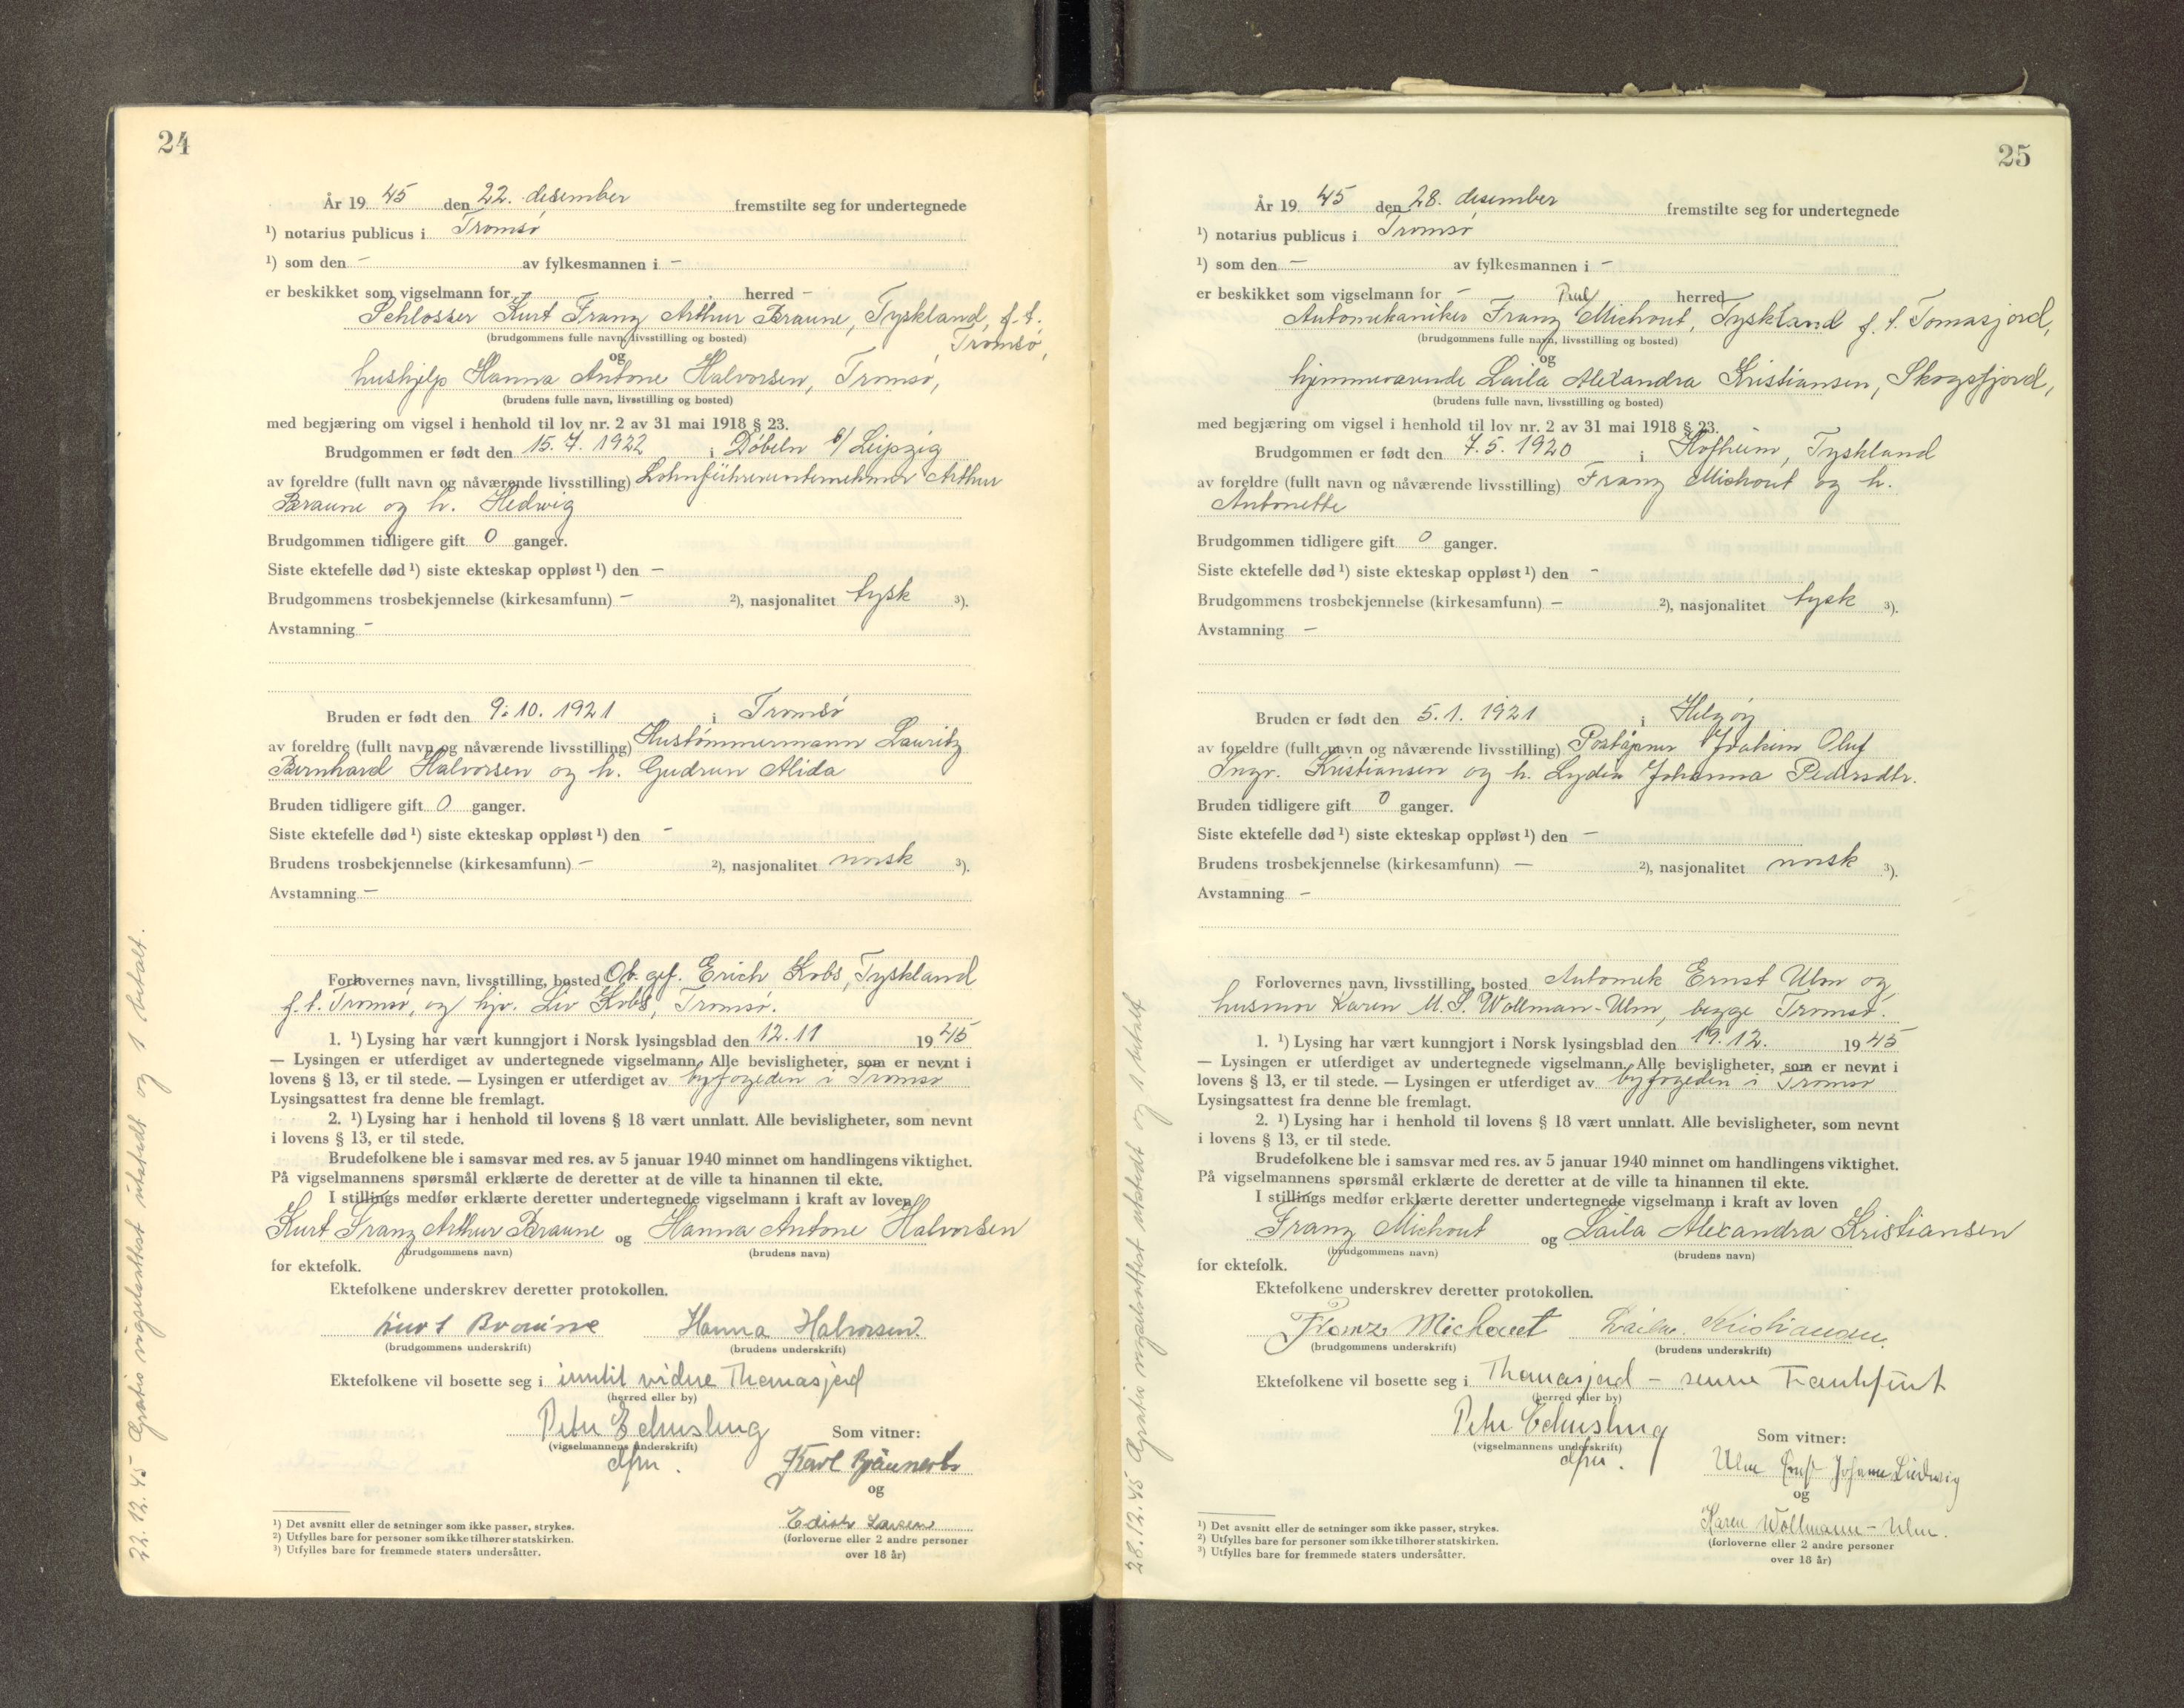 24
År 19 45 den 22. desember fremstilte seg for undertegnede
¹) notarius publicus i Tromsø
¹) som den – av fylkesmannen i –
er beskikket som vigselmann for – herred –
Schlosser Kurt Franz Arthur Braune, Tyskland, f.t.
(brudgommens fulle navn, livsstilling og bosted) Tromsø,
og
hushjelp Hanna Antone Halvorsen, Tromsø,
(brudens fulle navn, livsstilling og bosted)
med begjæring om vigsel i henhold til lov nr. 2 av 31 mai 1918 § 23.
Brudgommen er født den 15.7.1922 i Döbeln b/ Leipzig
av foreldre (fullt navn og nåværende livsstilling) Arthur
Braune og h. Hedwig
Brudgommen tidligere gift 0 ganger.
Siste ektefelle død ¹) siste ekteskap oppløst ¹) den –
Brudgommens trosbekjennelse (kirkesamfunn) – ²), nasjonalitet tysk ³).
Avstamning –
Bruden er født den 9.10.1921 i Tromsø
av foreldre (fullt navn og nåværende livsstilling) Hustømmermann Lauritz
Bernhard Halvorsen og h. Gudrun Alida
Bruden tidligere gift 0 ganger.
Siste ektefelle død ¹) siste ekteskap oppløst ¹) den –
Brudens trosbekjennelse (kirkesamfunn) – ²), nasjonalitet norsk ³).
Avstamning –
Forlovernes navn, livsstilling, bosted Ob. gef. Erich Kobs, Tyskland
f.t. Tromsø, og hjv. Liv Kobs, Tromsø.
1. ¹) Lysing har vært kunngjort i Norsk lysingsblad den 12.11 19 45
— Lysingen er utferdiget av undertegnede vigselmann. Alle bevisligheter, som er nevnt i
lovens § 13, er til stede. — Lysingen er utferdiget av byfogeden i Tromsø
Lysingsattest fra denne ble fremlagt.
2. ¹) Lysing har i henhold til lovens § 18 vært unnlatt. Alle bevisligheter, som nevnt
i lovens § 13, er til stede.
Brudefolkene ble i samsvar med res. av 5 januar 1940 minnet om handlingens viktighet.
På vigselmannens spørsmål erklærte de deretter at de ville ta hinannen til ekte.
I stillings medfør erklærte deretter undertegnede vigselmann i kraft av loven
Kurt Franz Arthur Braune og Hanna Antone Halvorsen
(brudgommens navn) (brudens navn)
for ektefolk.
Ektefolkene underskrev deretter protokollen.
Kurt Braune Hanna Halvorsen
(brudgommens underskrift) (brudens underskrift)
Ektefolkene vil bosette seg i inntil videre Thomasjord
(herred eller by)
Som vitner:
(vigselmannens underskrift)
Karl
og
Edith Larsen
(forloverne eller 2 andre personer
over 18 år)
¹) Det avsnitt eller de setninger som ikke passer, strykes.
²) Utfylles bare for personer som ikke tilhører statskirken.
³) Utfylles bare for fremmede staters undersåtter.
22.12.45 Gratis vigselsattest utstedt og 1 betalt.
25
År 19 45 den 28. desember fremstilte seg for undertegnede
¹) notarius publicus i Tromsø
¹) som den – av fylkesmannen i –
er beskikket som vigselmann for – herred
Paul
Automekaniker Franz Michout, Tyskland f.t. Tomasjord,
(brudgommens fulle navn, livsstilling og bosted)
og
hjemmeværende Laila Alexandra Kristiansen, Skogsfjord,
(brudens fulle navn, livsstilling og bosted)
med begjæring om vigsel i henhold til lov nr. 2 av 31 mai 1918 § 23.
Brudgommen er født den 7.5.1920 i Hofheim, Tyskland
av foreldre (fullt navn og nåværende livsstilling) Franz Michout og h.
Antonette
Brudgommen tidligere gift 0 ganger.
Siste ektefelle død ¹) siste ekteskap oppløst ¹) den –
Brudgommens trosbekjennelse (kirkesamfunn) – ²), nasjonalitet tysk ³).
Avstamning –
Bruden er født den 5.1.1921 i Helgøy
av foreldre (fullt navn og nåværende livsstilling) Poståpner Joakim Oluf
Ingv. Kristiansen og h. Lydia Johanna Pedersdtr.
Bruden tidligere gift 0 ganger.
Siste ektefelle død ¹) siste ekteskap oppløst ¹) den –
Brudens trosbekjennelse (kirkesamfunn) – ²), nasjonalitet norsk ³).
Avstamning –
Forlovernes navn, livsstilling, bosted Automek Ernst Ulm og
husmor Karen M. S. Wollman-Ulm, begge Tromsø.
1. ¹) Lysing har vært kunngjort i Norsk lysingsblad den 19.12. 19 45
— Lysingen er utferdiget av undertegnede vigselmann. Alle bevisligheter, som er nevnt i
lovens § 13, er til stede. — Lysingen er utferdiget av byfogeden i Tromsø
Lysingsattest fra denne ble fremlagt.
2. ¹) Lysing har i henhold til lovens § 18 vært unnlatt. Alle bevisligheter, som nevnt
i lovens § 13, er til stede.
Brudefolkene ble i samsvar med res. av 5 januar 1940 minnet om handlingens viktighet.
På vigselmannens spørsmål erklærte de deretter at de ville ta hinannen til ekte.
I stillings medfør erklærte deretter undertegnede vigselmann i kraft av loven
Franz Michout og Laila Alexandra Kristiansen
(brudgommens navn) (brudens navn)
for ektefolk.
Ektefolkene underskrev deretter protokollen.
Franz Michout Laila Kristiansen
(brudgommens underskrift) (brudens underskrift)
Ektefolkene vil bosette seg i Thomasjord – senere Frankfurt
(herred eller by)
Som vitner:
(vigselmannens underskrift)
Ulm Ernst Johann Ludwig
og
Karen Wollmann-Ulm.
(forloverne eller 2 andre personer
over 18 år)
¹) Det avsnitt eller de setninger som ikke passer, strykes.
²) Utfylles bare for personer som ikke tilhører statskirken.
³) Utfylles bare for fremmede staters undersåtter.
28.12.45 Gratis vigselsattest utstedt og 1 betalt